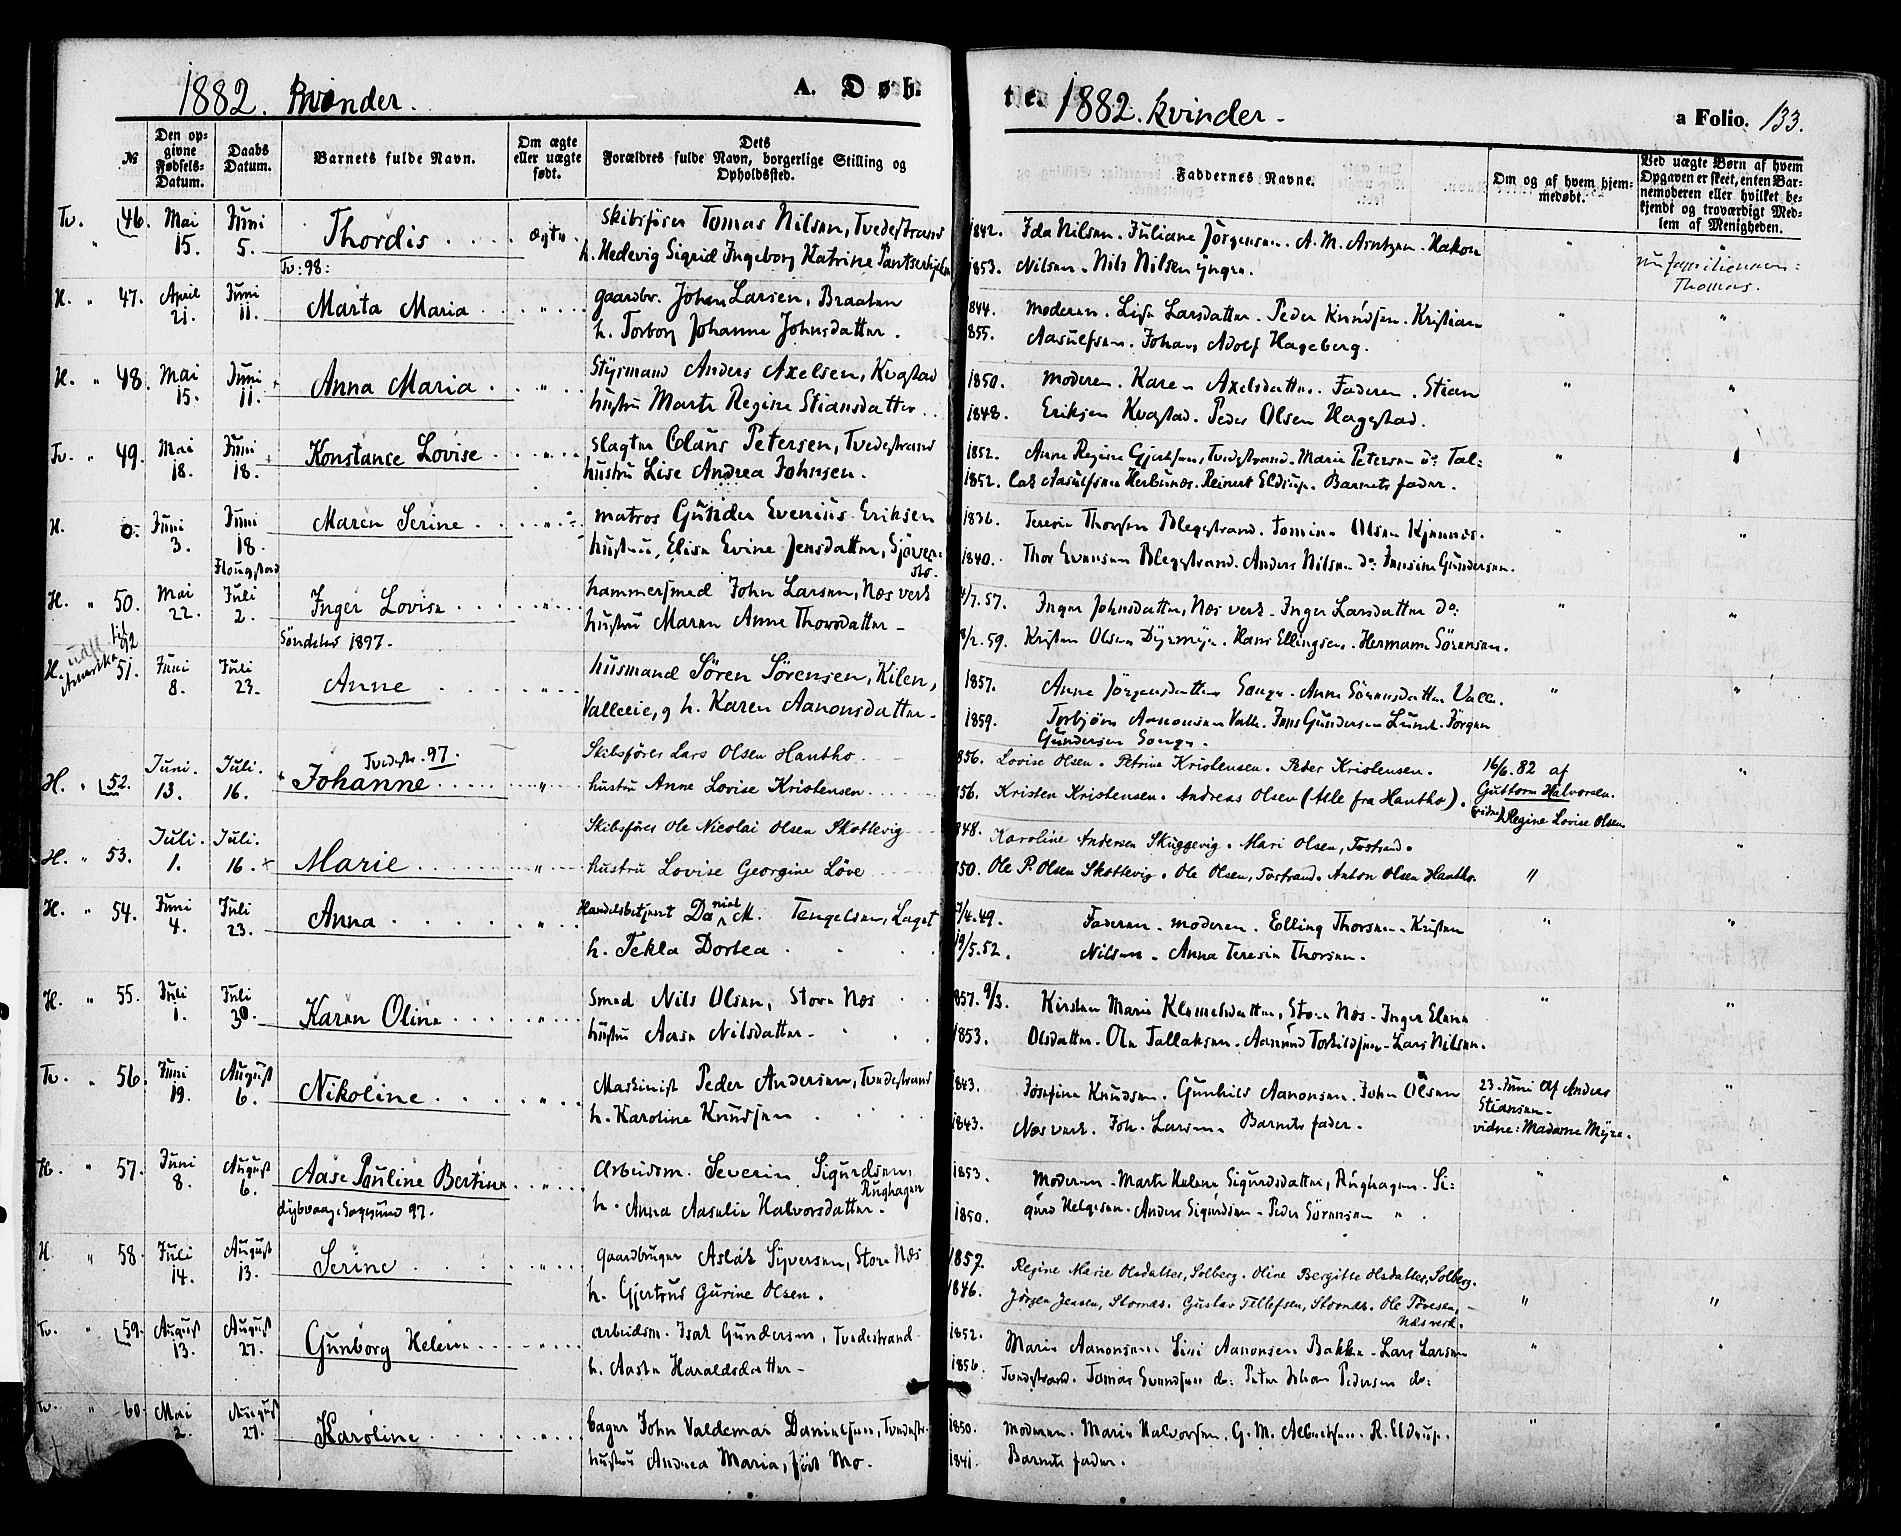 1882. Kvinder.
A. Døb-
№
Den opgivne Fødsels-Datum.
Daabs Datum.
Barnets fulde Navn.
Om ægte eller uægte født.
Dets Forældres fulde Navn, borgerlige Stilling og Opholdssted.
Tv. " 46. Mai 15. Juni 5. Thordis . . . . ægte. Skibsfører Tomas Nilsen, Tvedestrand
h. Hedevig Sigrid Ingeborg Katrine
Tv: 98:
H. " 47. April 21. Juni 11. Marta Maria . . . " . . . gaardbr. Johan Larsen, Braaten
h. Torborg Johanne Johnsdatter.
H. " 48. Mai 15. Juni 11. Anna Maria . . . " . . Styrmand Anders Axelsen, Kvastad
hustru Marte Regine Stiansdatter . .
Tv. " 49. Mai 18. Juni 18. Konstance Lovise . . " . . slagter Claus Petersen, Tvedestrand
hustru Lise Andrea Johnsen.
H. 0. Juni 3. Juni 18. Flougstad Maren Serine . . . " matros Gunder Evenius Eriksen
hustru, Elise Evine Jensdatter, Sjøver-
sto.
H. " 50. Mai 22. Juli 2. Inger Lovise . . . . " . . hammersmed John Larsen, Næs verk
hustru Maren Anne Thorsdatter -
Søndeled 1897.
H. " 51. Juni 8. Juli 23. Anne . . . . " . . husmand Søren Sørensen, Kilen,
Valleeie, og h. Karen Aanonsdatter -
Tvedestr. 97.
H. " 52. Juni. 13. Juli. 16. Johanne . . . . " Skibsfører Lars Olsen Hantho.
hustru Anne Lovise Kristensen . . .
H. " 53. Juli. 1. Juli. 16. Marie . . . . " Skibsfører Ole Nicolai Olsen Skottevig
hustru Lovise Georgine Löve
H. " 54. Juni 4. Juli 23. Anna . . . . " Handelsbetjent Daniel M. Tengelsen, Laget
h. Tekla Dortea . . .
H. " 55. Juli 1. Juli 30. Karen Oline . . . . " . . Smed Nils Olsen, Store Næs
hustru Aase Nilsdatter -
Tv. " 56. Juni 19. August 6. Nikoline . . . . " . . Maskinist Peder Andersen, Tvedestrand
h. Karoline Knudsen . . .
H. " 57. Juni 8. August 6. Aase Pauline Bertine . . " . . Arbeidsm. Severin Sigurdsen,
Rughagen
h. Anna Aaselie Halvorsdatter.
dybvaag, Sagesund 97.
H. " 58. Juli 14. August 13. Serine . . . . " . . gaardbruger Aslak Syversen, Store Næs
h. Gjertrud Gurine Olsen.
Tv. " 59. August 13. August 27. Gunborg Helene . . . " . . arbeidsm. Isak Gundersen, Tvedestrand
h. Aaste Haraldsdatter -
Tv. " 60. Mai 2. August 27. Karoline . . . . " . . bager John Valdemar Danielsen, Tvedestr.
hustru Andrea Maria, født Mo.
te. 1882. kvinder -
a Folio. 133.
Faddernes Navne.
Om og af hvem hjemmedøbt.
Ved uægte Børn af hvem Opgaven er skeet, enten Barnemoderen eller hvilket bekjendt og troværdigt Medlem af Menigheden.
1842. Ida Nilsen. Juliane Jørgensen. A. M. Arntzen. Hakon "
1853. Nilsen. Nils Nilsen yngre.
Thomas.
1844. moderen. Lise Larsdatter. Peder Knudsen. Kristian " "
1855. Aasulfsen. Johan Adolf Hageberg.
1850. moderen. Karen Axelsdatter. Faderen. Stian " "
1848. Eriksen Kvastad. Peder Olsen Hagestad.
1852. Anne Regine Gjertsen, Tvedestrand. Marie Petersen do. Tal= "
1852. lak Aasulfsen Herbunæs. Reinert Eldrup. Barnets fader.
1836. Teresie Thorsen Blegestrand. Tomine Olsen Kjennæs. " "
1840. Thor Evensen Blegestrand. Anders Nilsen do. Gundersen.
4/7. 57. Inger Johnsdatter, Næs verk. Inger Larsdatter do: " "
8/2. 59. Kristen Olsen Dyrmyr. Hans Ellingsen. Hermann Sørensen.
1857. Anne Jørgensdatter Songe. Anne Sørensdatter Valle. " "
1859. Torbjørn Aanonsen Valle. Jens Gundersen Lunde. Jørgen
Gundersen Songe.
1856. Lovise Olsen. Petrine Kristensen. Peder Kristensen. 16/6. 82 af "
1856. Kristen Kristensen. Andreas Olsen (Alle fra Hantho). Guttorm Halvorsen.
(vidne) Regine Lovise Olsen
1848. Karoline Andersen Skuggevig. Mari Olsen, Tostrand. "
1850. Ole P. Olsen Skottevig. Ole Olsen, Tostrand. Anton Olsen Hantho. "
7/4. 49. Faderen. moderen. Elling Thorsen. Kristen " "
19/5. 52. Nilsen. Anna Teresie Thorsen.
1857. 9/3. Kirsten Marie Klemetsdatter, Store Næs. Inger Elene " "
1853. Olsdatter. Ole Tallaksen. Aanund Torkildsen. Lars Nilsen.
1843. Josefine Knudsen. Gunhild Aanonsen. John Olsen 23. Juni af Anders "
Stiansen.
1843. Næs verk. Joh. Larsen. Barnets fader. vidne: Madame Myre.
1853. Moderen. Marte Helene Sigurdsdatter, Rughagen. Si= " "
1850. gurd Helgesen. Anders Sigurdsen. Peder Sørensen " .
1857. Regine Marie Olsdatter, Solberg. Oline Bergitte Olsdatter, Solberg.
1846. Jørgen Jensen, Stornæs. Gustav Tellefsen, Stornæs. Ole Tovesen, " "
Næsverk.
1852. Marie Aanonsen. Sini Aanonsen Bakke. Lars Larsen " "
1856. Tvedestrand. Tomas Gundersen do: Peter Johan Pedersen do:
1850. moderen. Marie Halvorsen. G. M. Albertsen. R. Eldrup. " "
1841. Barnets fader.